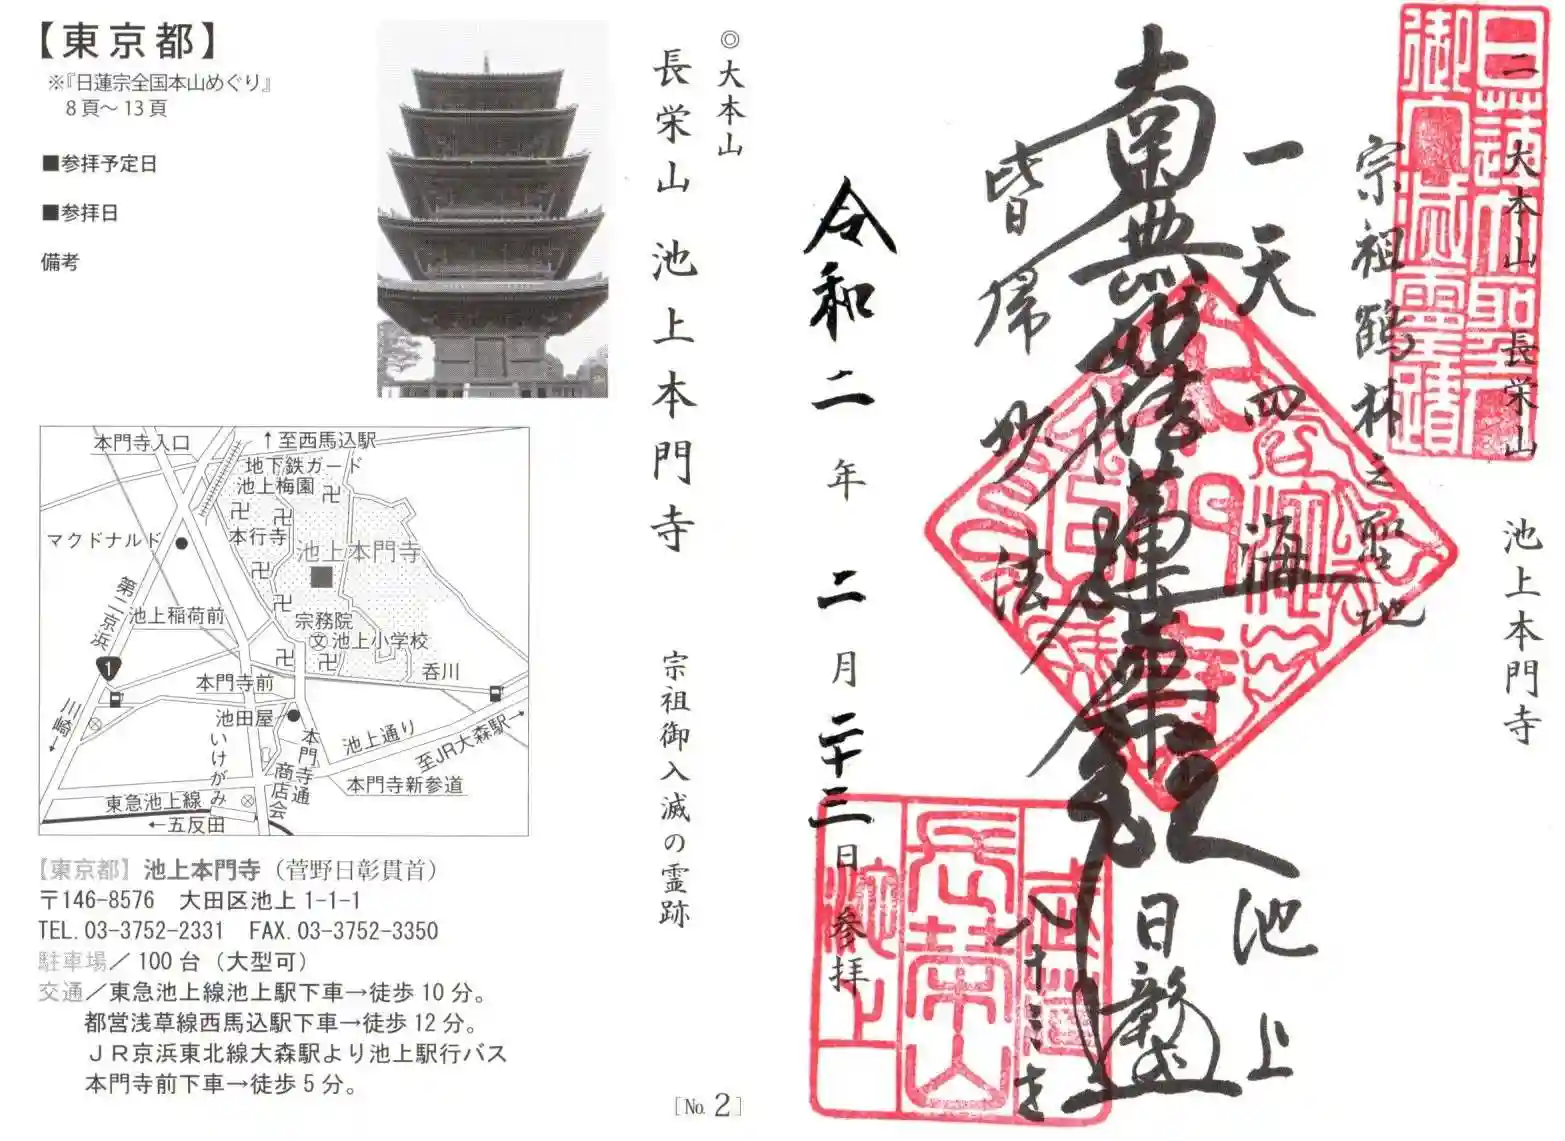 【東京都】
※『日蓮宗全国本山めぐり』
8頁〜13頁
■参拝予定日
■参拝日
備考
◎大本山
長栄山 池上本門寺
宗祖御入滅の霊跡
本門寺入口
↑至西馬込駅
地下鉄ガード
池上梅園
卍
卍
卍
本行寺
マクドナルド
池上本門寺
卍
第二京浜
卍
池上稲荷前
宗務院
文
池上小学校
卍
卍
1
呑川
本門寺前
川崎
←
池田屋
いけがみ
本門寺通
商店会
池上通り
至JR大森駅→
本門寺新参道
東急池上線
←五反田
【東京都】池上本門寺（菅野日彰貫首）
〒146-8576 大田区池上1-1-1
TEL.03-3752-2331 FAX.03-3752-3350
駐車場／100台（大型可）
交通／東急池上線池上駅下車→徒歩10分。
都営浅草線西馬込駅下車→徒歩12分。
ＪＲ京浜東北線大森駅より池上駅行バス
本門寺前下車→徒歩5分。
［№2］
二 大本山 長栄山 池上本門寺
日蓮大聖人
御入滅霊蹟
宗祖鶴林之聖地
一天四海
皆帰妙法
南無妙法蓮華経
池上
日彰
八十三才
長栄山
池上
令和二年 二月 二十三日 参拝